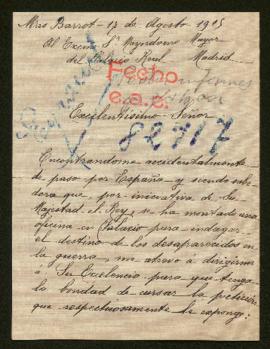 Mrs Barrot - 17 de Agosto 1915
Al Excmo Sr Mayordomo Mayor
del Palacio Real Madrid.
Fecho
e.a.c.
Excelentisimo Señor
82717
Encontrandome accidentalmente
de paso por España y siendo sabe-
dora que, por iniciativa de Su
Majestad el Rey, se ha montado una
oficina en Palacio para indagar
el destino de los desaparecidos en
la guerra, me atrevo á dirigirme
á Su Excelencia para que tenga
la bondad de cursar la peticion
que respectuosamente le expongo: